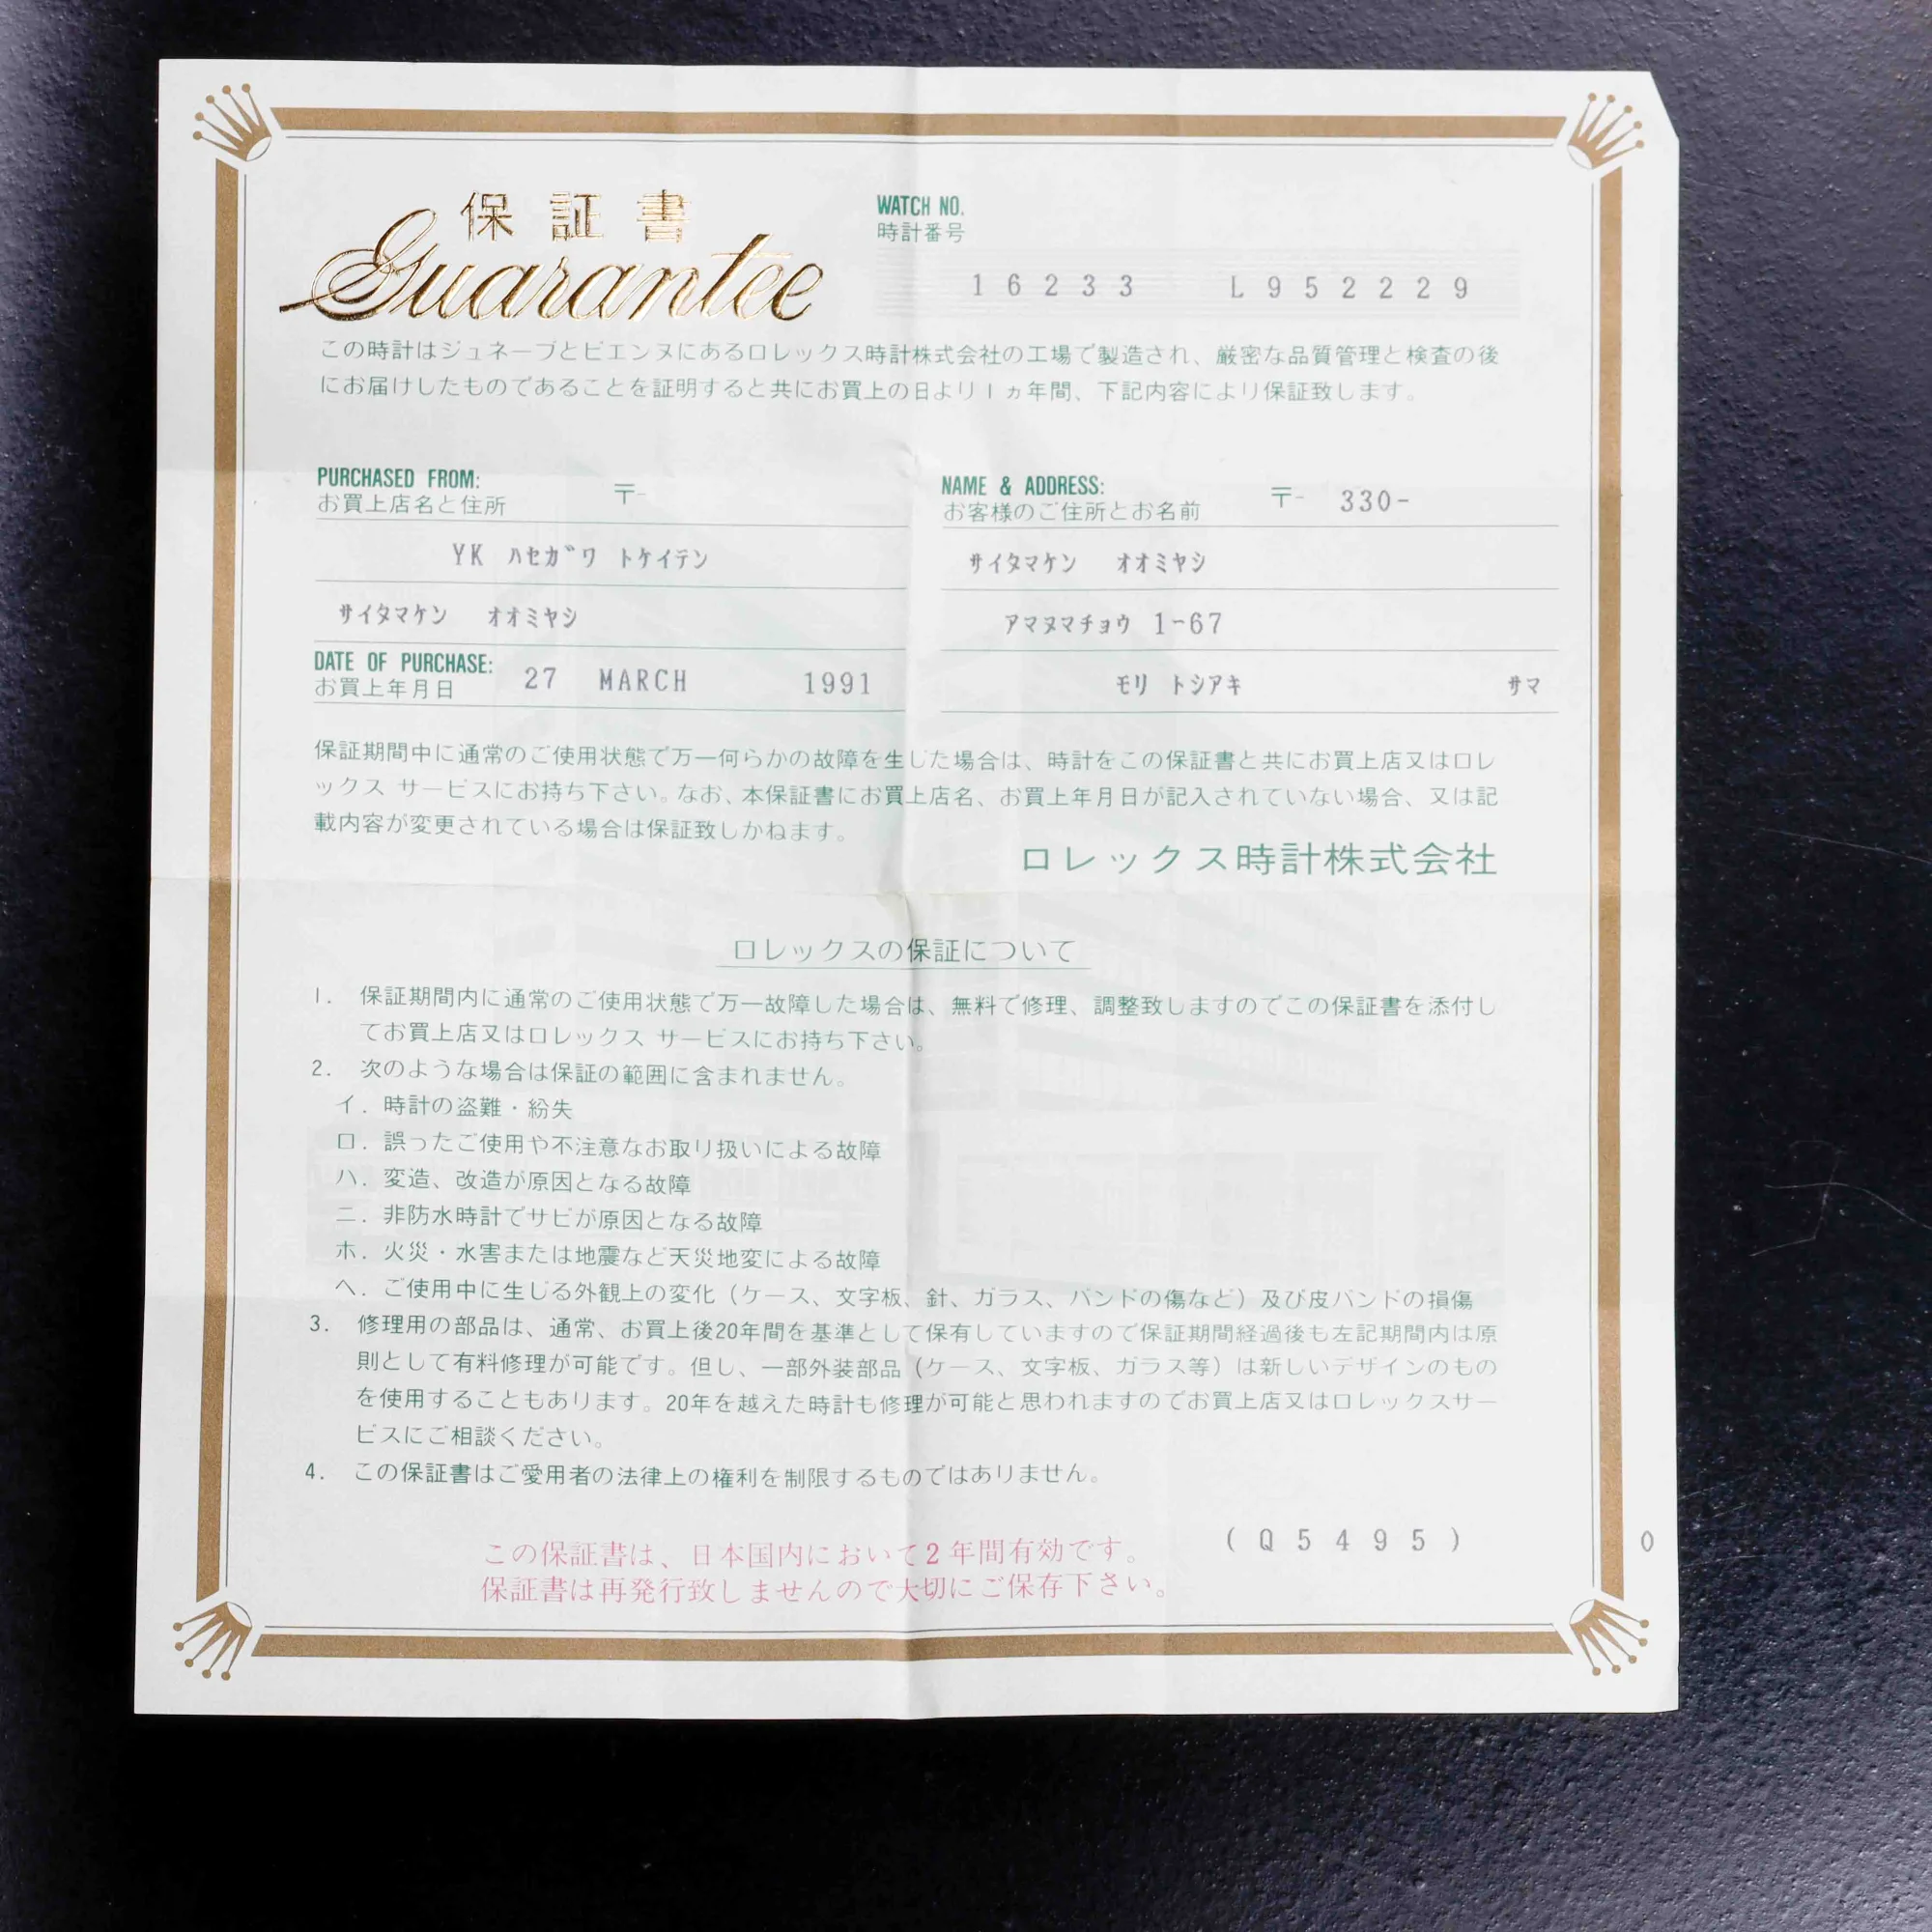 保証書
Guarantee
WATCH NO.
時計番号
16233 L952229
この時計はジュネーブとビエンヌにあるロレックス時計株式会社の工場で製造され、厳密な品質管理と検査の後
にお届けしたものであることを証明すると共にお買上の日より1ヵ年間、下記内容により保証致します。
PURCHASED FROM:
お買上店名と住所 〒-
YK ハセガワ トケイテン
サイタマケン オオミヤシ
DATE OF PURCHASE:
お買上年月日 27 MARCH 1991
NAME & ADDRESS:
お客様のご住所とお名前 〒- 330-
サイタマケン オオミヤシ
アマヌマチョウ 1-67
モリ トシアキ サマ
保証期間中に通常のご使用状態で万一何らかの故障を生じた場合は、時計をこの保証書と共にお買上店又はロレ
ックス サービスにお持ち下さい。なお、本保証書にお買上店名、お買上年月日が記入されていない場合、又は記
載内容が変更されている場合は保証致しかねます。
ロレックス時計株式会社
ロレックスの保証について
1. 保証期間内に通常のご使用状態で万一故障した場合は、無料で修理、調整致しますのでこの保証書を添付し
てお買上店又はロレックス サービスにお持ち下さい。
2. 次のような場合は保証の範囲に含まれません。
イ. 時計の盗難・紛失
ロ. 誤ったご使用や不注意なお取り扱いによる故障
ハ. 変造、改造が原因となる故障
ニ. 非防水時計でサビが原因となる故障
ホ. 火災・水害または地震など天災地変による故障
ヘ. ご使用中に生じる外観上の変化（ケース、文字板、針、ガラス、バンドの傷など）及び皮バンドの損傷
3. 修理用の部品は、通常、お買上後20年間を基準として保有していますので保証期間経過後も左記期間内は原
則として有料修理が可能です。但し、一部外装部品（ケース、文字板、ガラス等）は新しいデザインのもの
を使用することもあります。20年を越えた時計も修理が可能と思われますのでお買上店又はロレックスサー
ビスにご相談ください。
4. この保証書はご愛用者の法律上の権利を制限するものではありません。
(Q5495) 0
この保証書は、日本国内において2年間有効です。
保証書は再発行致しませんので大切にご保存下さい。